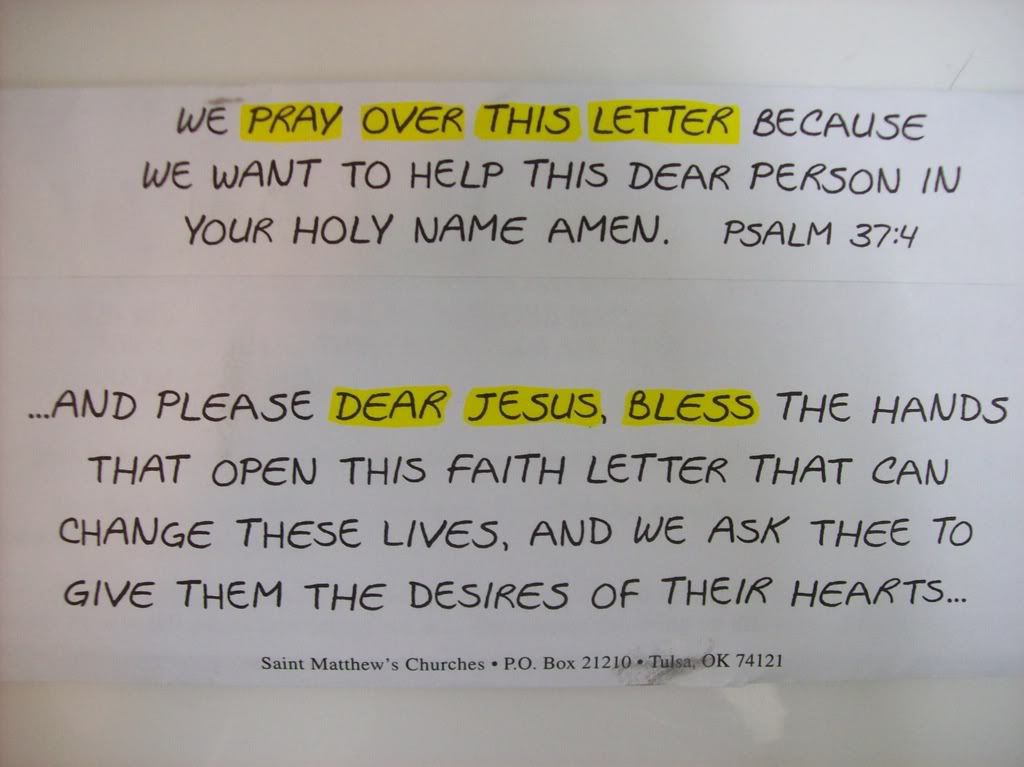 WE PRAY OVER THIS LETTER BECAUSE
WE WANT TO HELP THIS DEAR PERSON IN
YOUR HOLY NAME AMEN. PSALM 37:4
...AND PLEASE DEAR JESUS, BLESS THE HANDS
THAT OPEN THIS FAITH LETTER THAT CAN
CHANGE THESE LIVES, AND WE ASK THEE TO
GIVE THEM THE DESIRES OF THEIR HEARTS...
Saint Matthew's Churches • P.O. Box 21210 • Tulsa, OK 74121